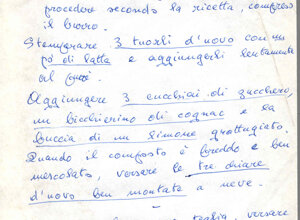 procedere secondo la ricetta, compreso
il burro.
Stemperare 3 tuorli d'uovo con un
pò di latte e aggiungerli lentamente
al
Aggiungere 3 cucchiai di zucchero,
un bicchierino di cognac e la
buccia di un limone grattugiato.
Quando il composto è freddo e ben
mescolato, versare le tre chiare
d'uovo ben montate a neve.
versare